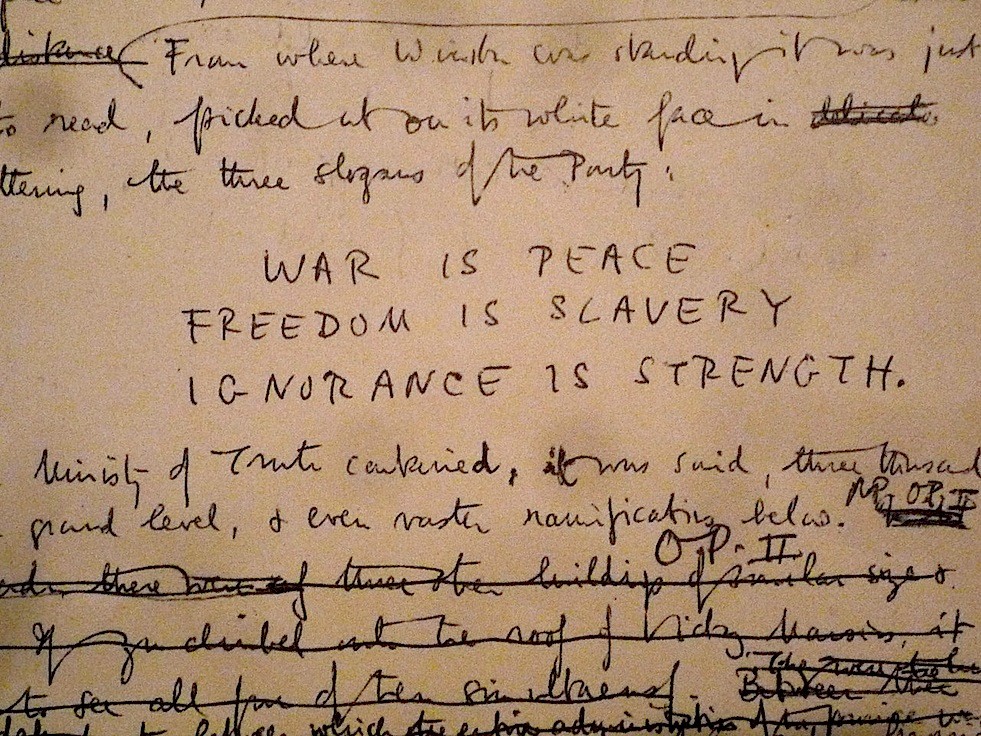 distance From where Winston was standing it was just
to read, picked out on its white face in delicate
ttering, the three slogans of the Party:
WAR IS PEACE
FREEDOM IS SLAVERY
IGNORANCE IS STRENGTH.
Ministry of Truth contained, it was said, three thousand
ground level, & even vaster ramifications below.
OP. II
there were of three other buildings of similar size &
If you climbed onto the roof of Victory Mansions, it
to see all four of them simultaneously. Between
which the entire administrative